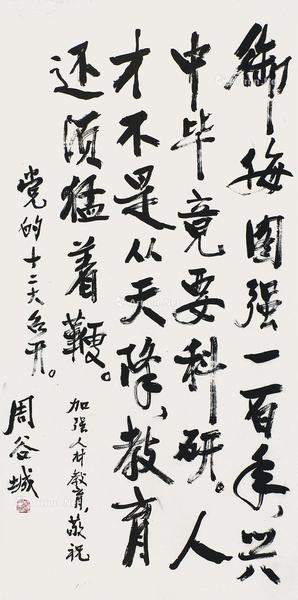 御侮图强一百年，兴
中毕竟要科研。人
才不是从天降、教育
还须猛着鞭。
加强人材教育，敬祝
党的十二大召开。
周谷城